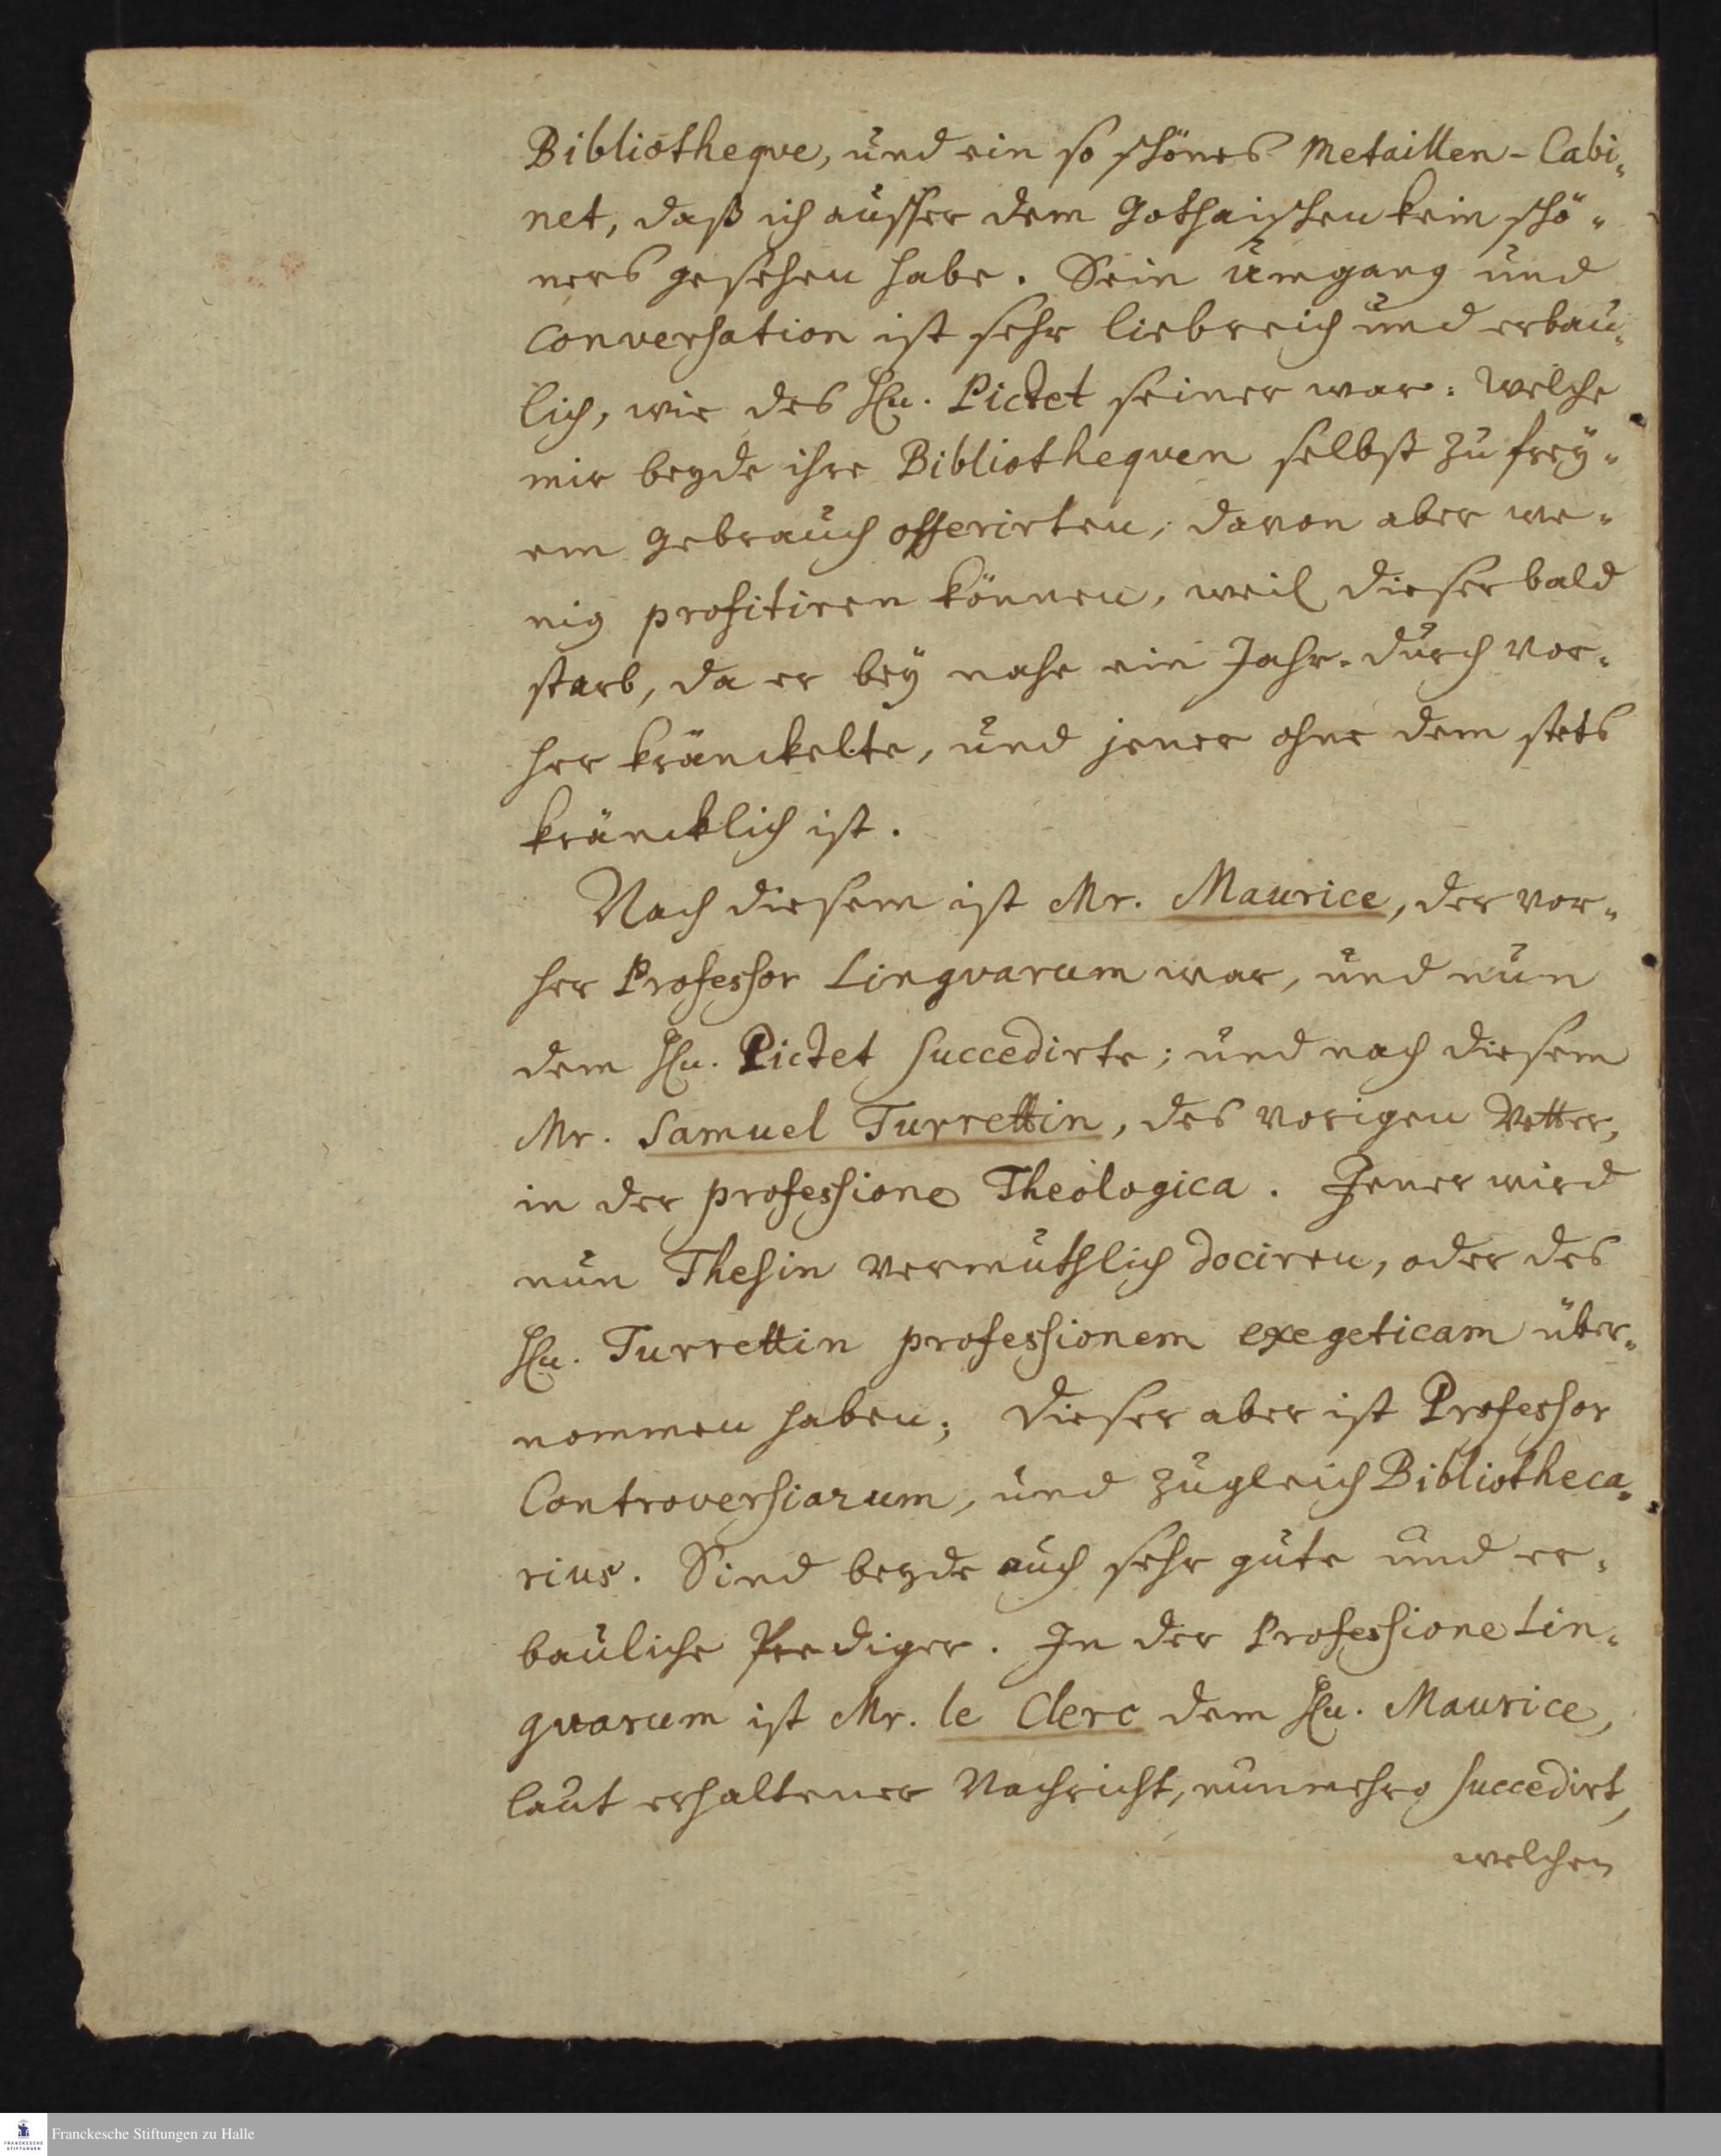 Bibliotheqve, und ein so schönes Metaillen-Cabi-
net, daß ich ausser dem Gothaischen kein schö-
ners gesehen habe. Sein Umgang und
Conversation ist sehr liebreich und erbau-
lich, wie des Hn. Pictet seiner war: welche
mir beyde ihre Bibliotheqven selbst zu frey-
em Gebrauch offerirten; davon aber we-
nig profitiren können, weil dieser bald
starb, da er bey nahe ein Jahr durch vor-
her kränckelte, und jener ohne dem stets
kräncklich ist.
Nach diesem ist Mr. Maurice, der vor-
her Professor Lingvarum war, und nun
dem Hn. Pictet succedirte; und nach diesem
Mr. Samuel Turrettin, des vorigen Vetter,
in der professione Theologica. Jener wird
nun Thesin vermuthlich dociren, oder des
Hn. Turrettin professionem exegeticam über-
nommen haben; dieser aber ist Professor
Controversiarum, und zugleich Bibliotheca-
rius. Sind beyde auch sehr gute und er-
bauliche Prediger. In der Professione Lin-
gvarum ist Mr. le Clerc dem Hn. Maurice,
laut erhaltener Nachricht, nunmehro succedirt,
welchen
Franckesche Stiftungen zu Halle
FRANCKESCHE
STIFTUNGEN